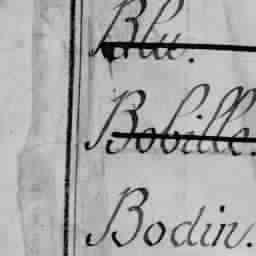 Blu.
Bobille.
Bodin.